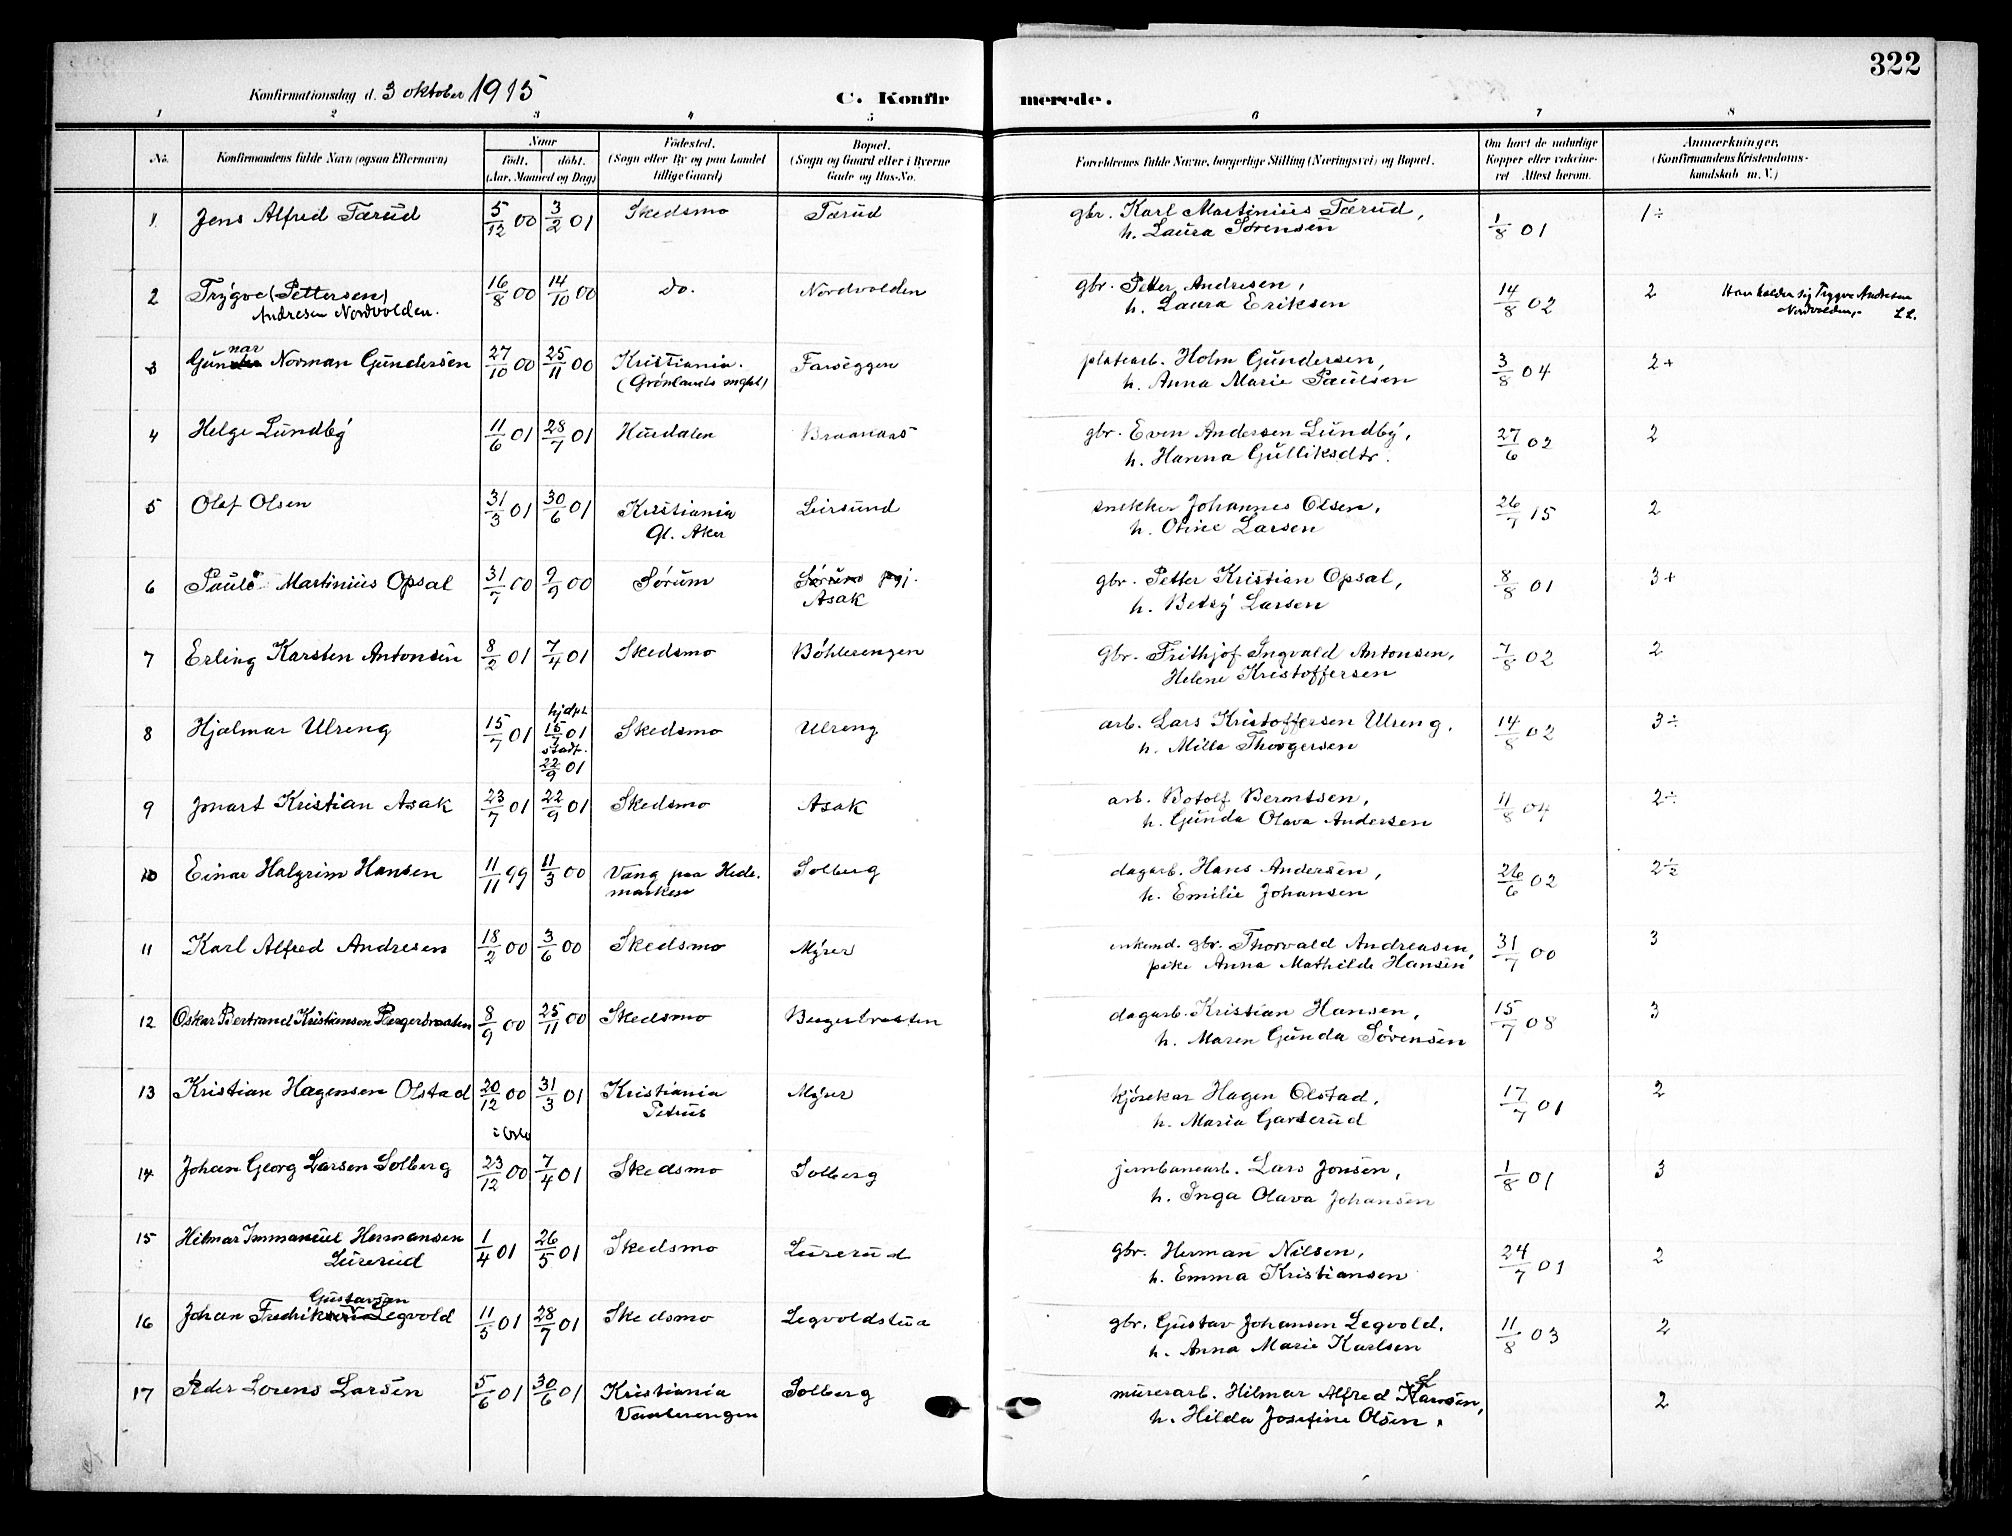 322
Konfirmationsdag d. 3 oktober 1915
C. Konfirmerede.
1 2 3 4 5 6 7 8
No.
Konfirmandens fulde Navn (ogsaa Efternavn)
Naar
født. døbt.
(Aar, Maaned og Dag)
Fødested.
(Sogn eller By og paa Landet
tillige Gaard)
Bopæl.
(Sogn og Gaard eller i Byerne
Gade og Hus-No.
Forældrenes fulde Navne, borgerlige Stilling (Næringsvei) og Bopæl.
Om havt de naturlige
Kopper eller vakcine-
ret Attest herom.
Anmerkninger.
(Konfirmandens Kristendoms-
kundskab m. V.)
1 Jens Alfred Tærud 5/12 00 3/2 01 Skedsmo Tærud gbr. Karl Martinius Tærud, 1/8 01 1÷
h. Laura Sørensen
2 Trygve (Pettersen) 16/8 00 14/10 00 Do. Nordvolden gbr. Petter Andresen, 14/8 02 2 Han kalder sig Trygve Andresen
Andresen Nordvolden. h. Laura Eriksen Nordvolden. LL.
3 Gunnar Norman Gundersen 27/10 00 25/11 00 Kristiania. Farseggen platearb. Holm Gundersen, 3/8 04 2+
(Grønlands mght) h. Anna Marie Paulsen
4 Helge Lundby 11/6 01 28/7 01 Hurdalen Braanaas gbr. Even Andersen Lundby, 27/6 02 2
h. Hanna Gulliksdtr.
5 Olaf Olsen 31/3 01 30/6 01 Kristiania Leirsund snekker Johannes Olsen, 26/7 15 2
Gl. Aker h. Otine Larsen
6 Paul Martinius Opsal 31/7 00 9/9 00 Sørum Sørum pgj. gbr. Petter Kristian Opsal, 8/8 01 3+
Asak h. Betsy Larsen
7 Erling Karsten Antonsen 8/2 01 7/4 01 Skedsmo Bøhlerengen gbr. Frithjof Ingvald Antonsen, 7/8 02 2
Helene Kristoffersen
8 Hjalmar Ulreng 15/7 01 hjdpt. 15/7 01 Skedsmo Ulreng arb. Lars Kristoffersen Ulreng, 14/8 02 3÷
stadf. 22/9 01 h. Milla Thorgersen
9 Jnart Kristian Asak 23/7 01 22/9 01 Skedsmo Asak arb. Botolf Berntsen, 11/8 04 2÷
h. Gunda Olava Andersen
10 Einar Halgrim Hansen 11/11 99 11/3 00 Vang paa Hede- Solberg dagarb. Hans Andersen, 26/6 02 2½
marken h. Emilie Johansen
11 Karl Alfred Andresen 18/2 00 3/6 00 Skedsmo Myrer enkemd. gbr. Thorvald Andreasen, 31/7 00 3
pike Anna Mathilde Hansen
12 Oskar Bertrand Kristiansen Bergerbraaten 8/9 00 25/11 00 Skedsmo Bergerbraaten dagarb. Kristian Hansen, 15/7 08 3
h. Maren Gunda Sørensen
13 Kristian Hagensen Olstad 20/12 00 31/3 01 Kristiania Myrer kjørekar Hagen Olstad, 17/7 01 2
Petrus h. Maria Garserud
i Oslo
14 Johan Georg Larsen Solberg 23/12 00 7/4 01 Skedsmo Solberg jernbanearb. Lars Jonsen, 1/8 01 3
h. Inga Olava Johansen
15 Hilmar Immanuel Hermansen 1/4 01 26/5 01 Skedsmo Lurerud gbr. Herman Nilsen, 24/7 01 2
Lurerud h. Emma Kristiansen
Gustavsen
16 Johan Fredrik Legvold 11/5 01 28/7 01 Skedsmo Legvoldstua gbr. Gustav Johansen Legvold, 11/8 03 2
h. Anna Marie Karlsen
17 Peder Lorens Larsen 5/6 01 30/6 01 Kristiania Solberg murerarb. Hilmar Alfred Larsen, 2
Vaalerengen h. Hilda Josefine Olsen.